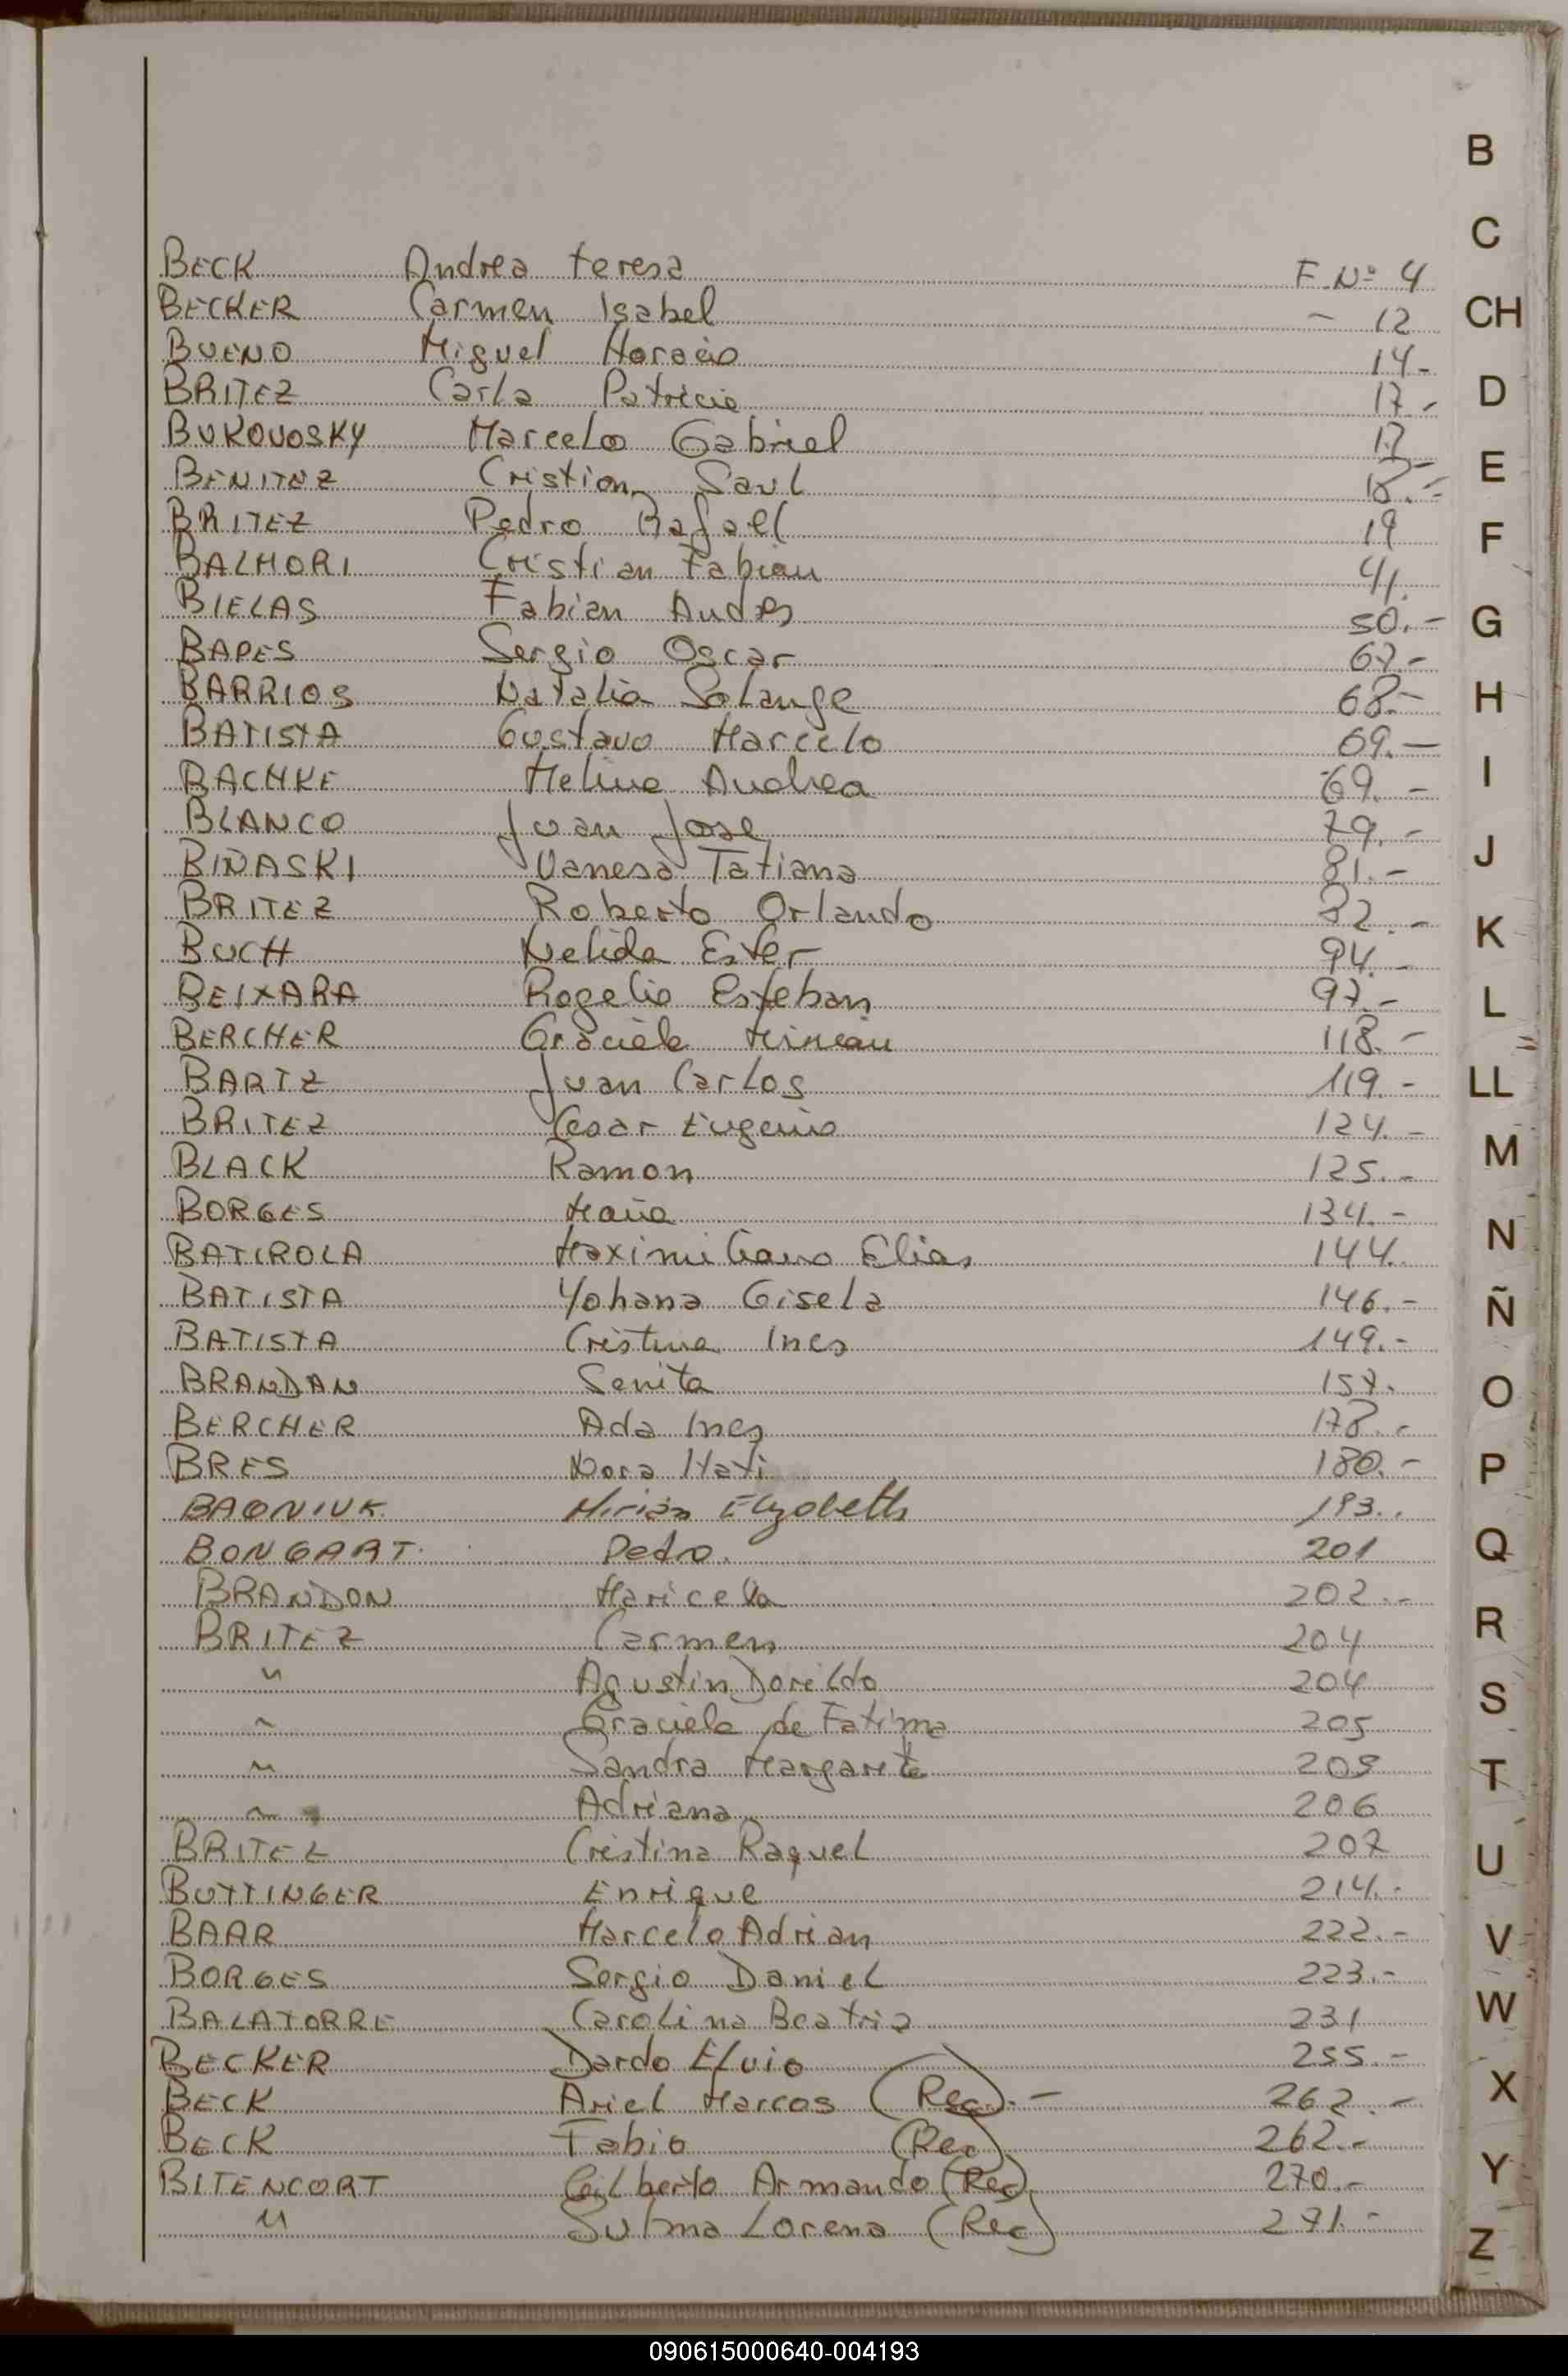 BECK Andrea Teresa F. Nº 4
BECKER Carmen Isabel - 12
BUENO Miguel Horacio 14.-
BRITEZ Carla Patricia 17.-
BUKOVOSKY Marcelo Gabriel 17.-
BENITEZ Cristian Saul 18.-
BRITEZ Pedro Rafael 19
BALMORI Cristian Fabian 41.
BIELAS Fabian Andres 50.-
BAPES Sergio Oscar 67.-
BARRIOS Natalia Solange 68.-
BATISTA Gustavo Marcelo 69.-
BACHKE Melina Andrea 69.-
BLANCO Juan Jose 79.-
BIÑASKI Vanesa Tatiana 81.-
BRITEZ Roberto Orlando 82.-
BUCH Nelida Ester 94.-
BEIXARA Rogelio Esteban 97.-
BERCHER Graciela Miriam 118.-
BARTZ Juan Carlos 119.-
BRITEZ Cesar Eugenio 124.-
BLACK Ramon 125.-
BORGES Maria 134.-
BATIROLA Maximiliano Elias 144.
BATISTA Yohana Gisela 146.-
BATISTA Cristina Ines 149.-
BRANDAN Senita 157.
BERCHER Ada Ines 178.-
BRES Nora Itati 180.-
Mirian Elizabeth 193..
BONGART. Pedro. 201
BRANDON Maricela 202.-
BRITEZ Carmen 204
" Agustin Dorildo 204
" Graciela de Fatima 205
" Sandra Margarita
" Adriana 206
BRITEZ Cristina Raquel 207
BUTTINGER Enrique 214.-
BAAR Marcelo Adrian 222.-
BORGES Sergio Daniel 223.-
BALATORRE Carolina Beatriz 231
BECKER Dardo Elvio 255.-
BECK Ariel Marcos (Rec).- 262.-
BECK Fabio (Rec) 262.-
BITENCORT Gilberto Armando (Rec) 270.-
" Sulma Lorena (Rec) 271.-
B
C
CH
D
E
F
G
H
I
J
K
L
LL
M
N
Ñ
O
P
Q
R
S
T
U
V
W
X
Y
Z
090615000640-004193